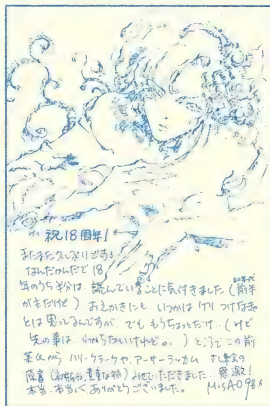 祝18周年!
またまたお久しぶりです。
なんだかんだで18
年のうち半分は、読んでいることに気付きました(前半
がまだけど)おえかきにも、いつかはケリつけなきゃ
とは思ってるんですが、でももうちょっとだけ…(けど
先の事は、わからないけど。。)ところでこの前
から ハリー・クラークや、アーサーラッカム さし絵の
(わぁわぁ、貴重な物)みせていただきました。感激!
本当、本当に ありがとうございました。
MISAO 98.6